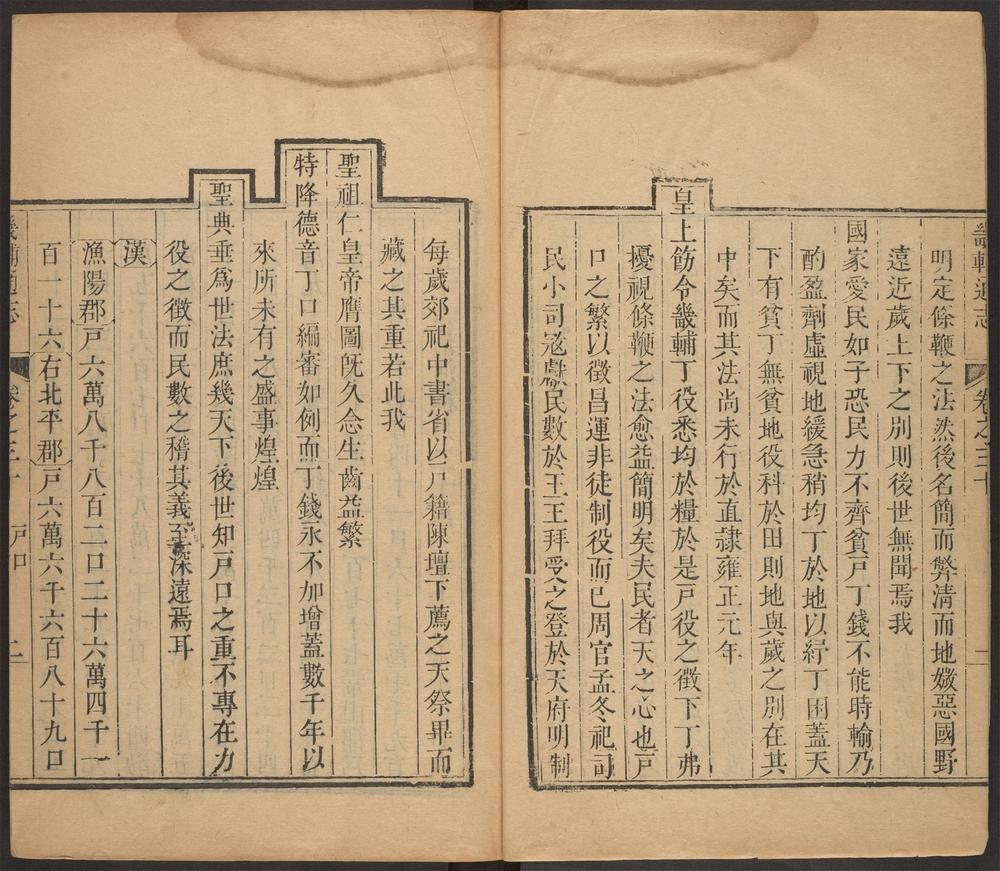 畿輔通志 卷之三十 一
明定條鞭之法然後名簡而弊清而地媺惡國野
遠近歲上下之別則後世無聞焉我
國家愛民如子恐民力不齊貧戸丁錢不能時輸乃
酌盈劑虛視地緩急稍均丁於地以紓丁困蓋天
下有貧丁無貧地役科於田則地與歲之別在其
中矣而其法尚未行於直隷雍正元年
皇上飭令畿輔丁役悉均於糧於是戸役之徵下丁弗
擾視條鞭之法愈益簡明矣夫民者天之心也戸
口之繁以徵昌運非徒制役而已周官孟冬祀司
民小司寇獻民數於王王拜受之登於天府明制
每歲郊祀中書省以戸籍陳壇下薦之天祭畢而
藏之其重若此我
聖祖仁皇帝膺圖旣久念生齒益繁
特降德音丁口編審如例而丁錢永不加增蓋數千年以
來所未有之盛事煌煌
聖典垂爲世法庶幾天下後世知戸口之重不專在力
役之徵而民數之稽其義至深遠焉耳
漢
漁陽郡戸六萬八千八百二口二十六萬四千一
百一十六右北平郡戸六萬六千六百八十九口
畿輔通志 卷之三十 戸口 二